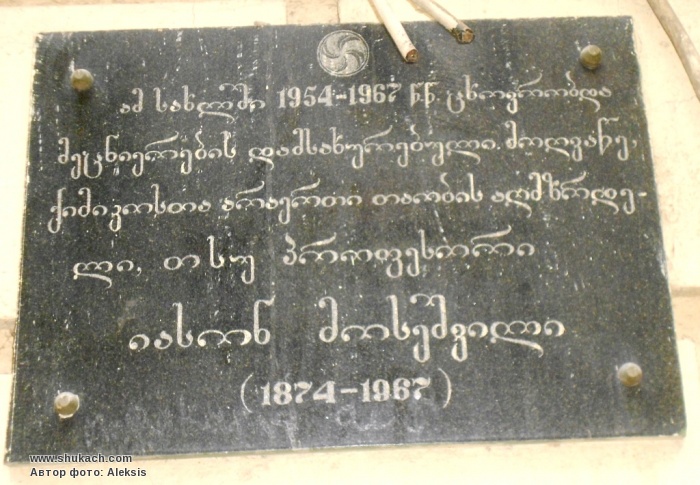 ამ სახლში 1954-1967 წ.წ. ცხოვრობდა
მეცნიერების დამსახურებული მოღვაწე,
ქიმიკოსთა არაერთი თაობის აღმზრდე-
ლი, თსუ პროფესორი
იასონ მოსეშვილი
(1874-1967)
www.shukach.com
Автор фото: Aleksis